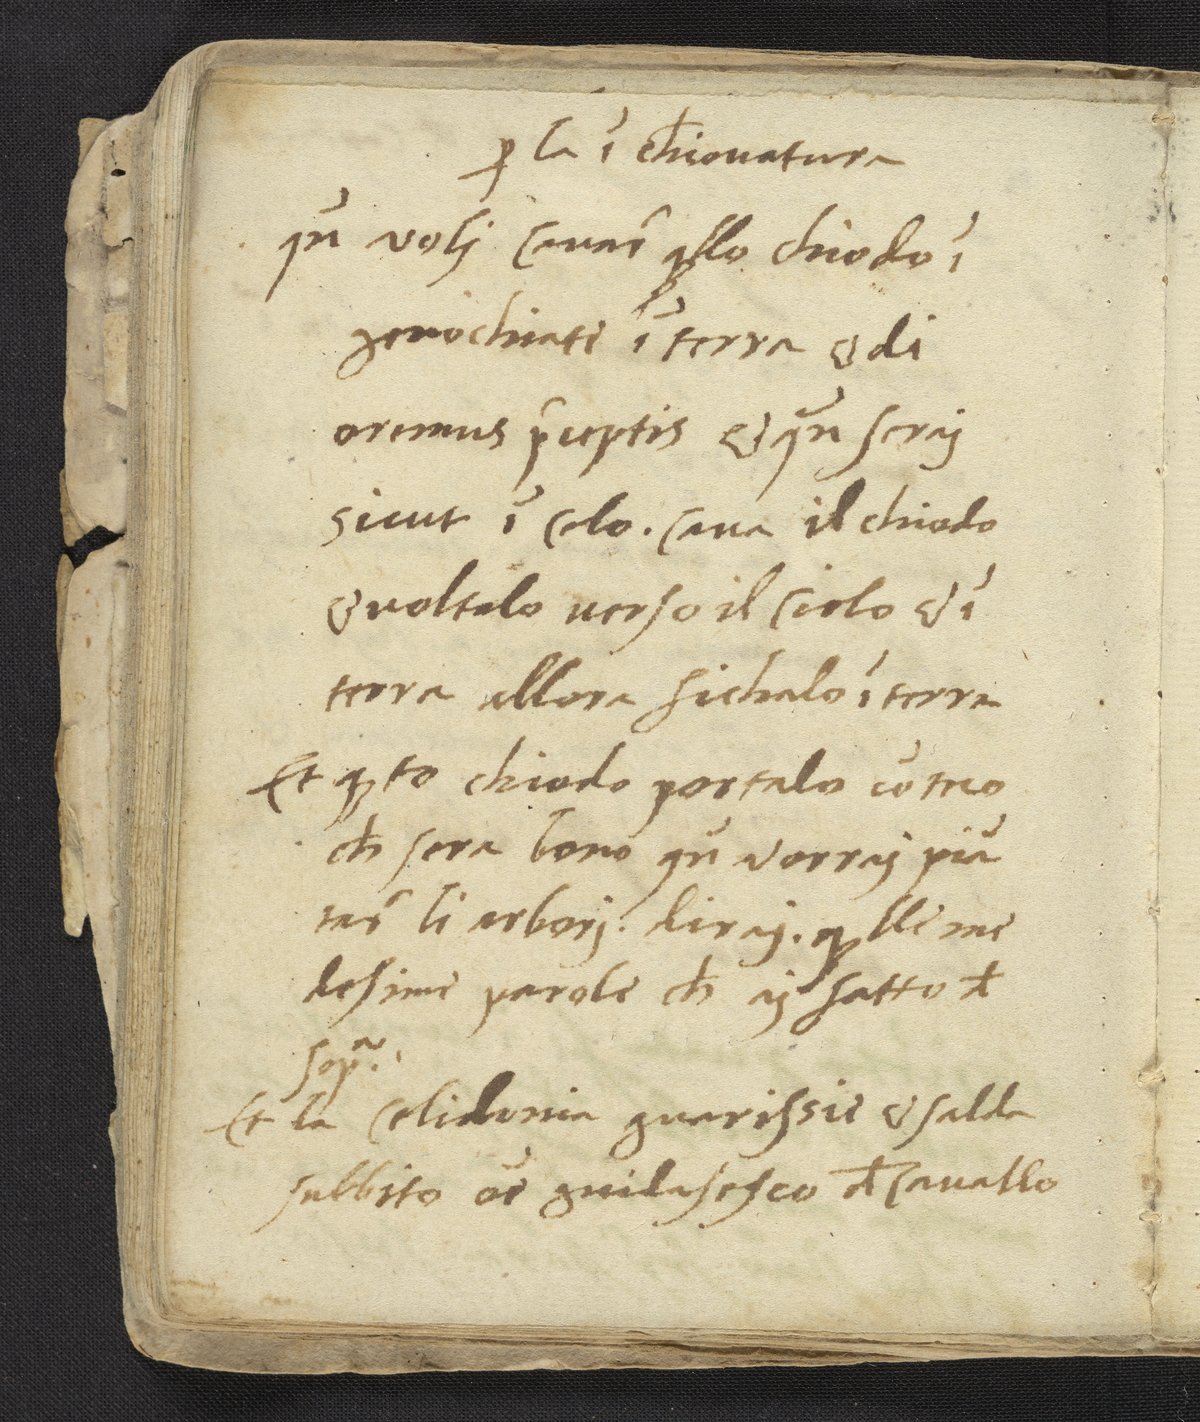 ꝑ la ī ch̄iouatura
qn̄ volj cauar̄ q̄llo chiodo ī
genochiate ī terra & di
oremus p̄ceptis & qn̄ seraj
sicut ī celo. caua il chiodo
& voltalo uerso il cielo & ī
terra allora fichalo ī terra
Et q̄sto chiodo portalo cō teco
ch̄ sera bono qn̄ vorraj piā
tar̄ li arborj. diraj. q̄lle me
desime parole ch̄ aj fatto d̄
sopª.
Et la celidonia guarissie & salda
subbito oē guidalesco d̄ cauallo